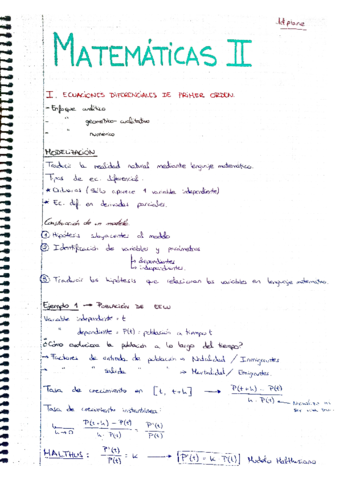 MATEMÁTICAS II
I. ECUACIONES DIFERENCIALES DE PRIMER ORDEN.
- Enfoque analítico
- " geométrico-cualitativo
- " numérico
MODELIZACIÓN
Traducir la realidad natural mediante lenguaje matemático.
Tipos de ec. diferencial.
* Ordinarias (Sólo aparece 1 variable independiente)
* Ec. dif. en derivadas parciales.
Construcción de un modelo.
① Hipótesis subyacentes al modelo
② Identificación de variables y parámetros
↳ dependientes
↳ independientes.
③ Traducir las hipótesis que relacionan las variables en lenguaje matemático.
Ejemplo 1 → POBLACIÓN DE EEUU
Variable independiente = t
" dependiente = P(t) = población a tiempo t
¿Cómo evoluciona la población a lo largo del tiempo?
→ Factores de entrada de población → Natalidad / Inmigrantes
→ " " salida " → Mortalidad / Emigrantes.
Tasa de crecimiento en [t, t+h] → P(t+h) - P(t) / h · P(t)
Tasa de crecimiento instantánea:
lim h→0 P(t+h) - P(t) / h · P(t) = P'(t) / P(t)
MALTHUS: P'(t) / P(t) = k → P'(t) = k P(t) Modelo Malthusiano